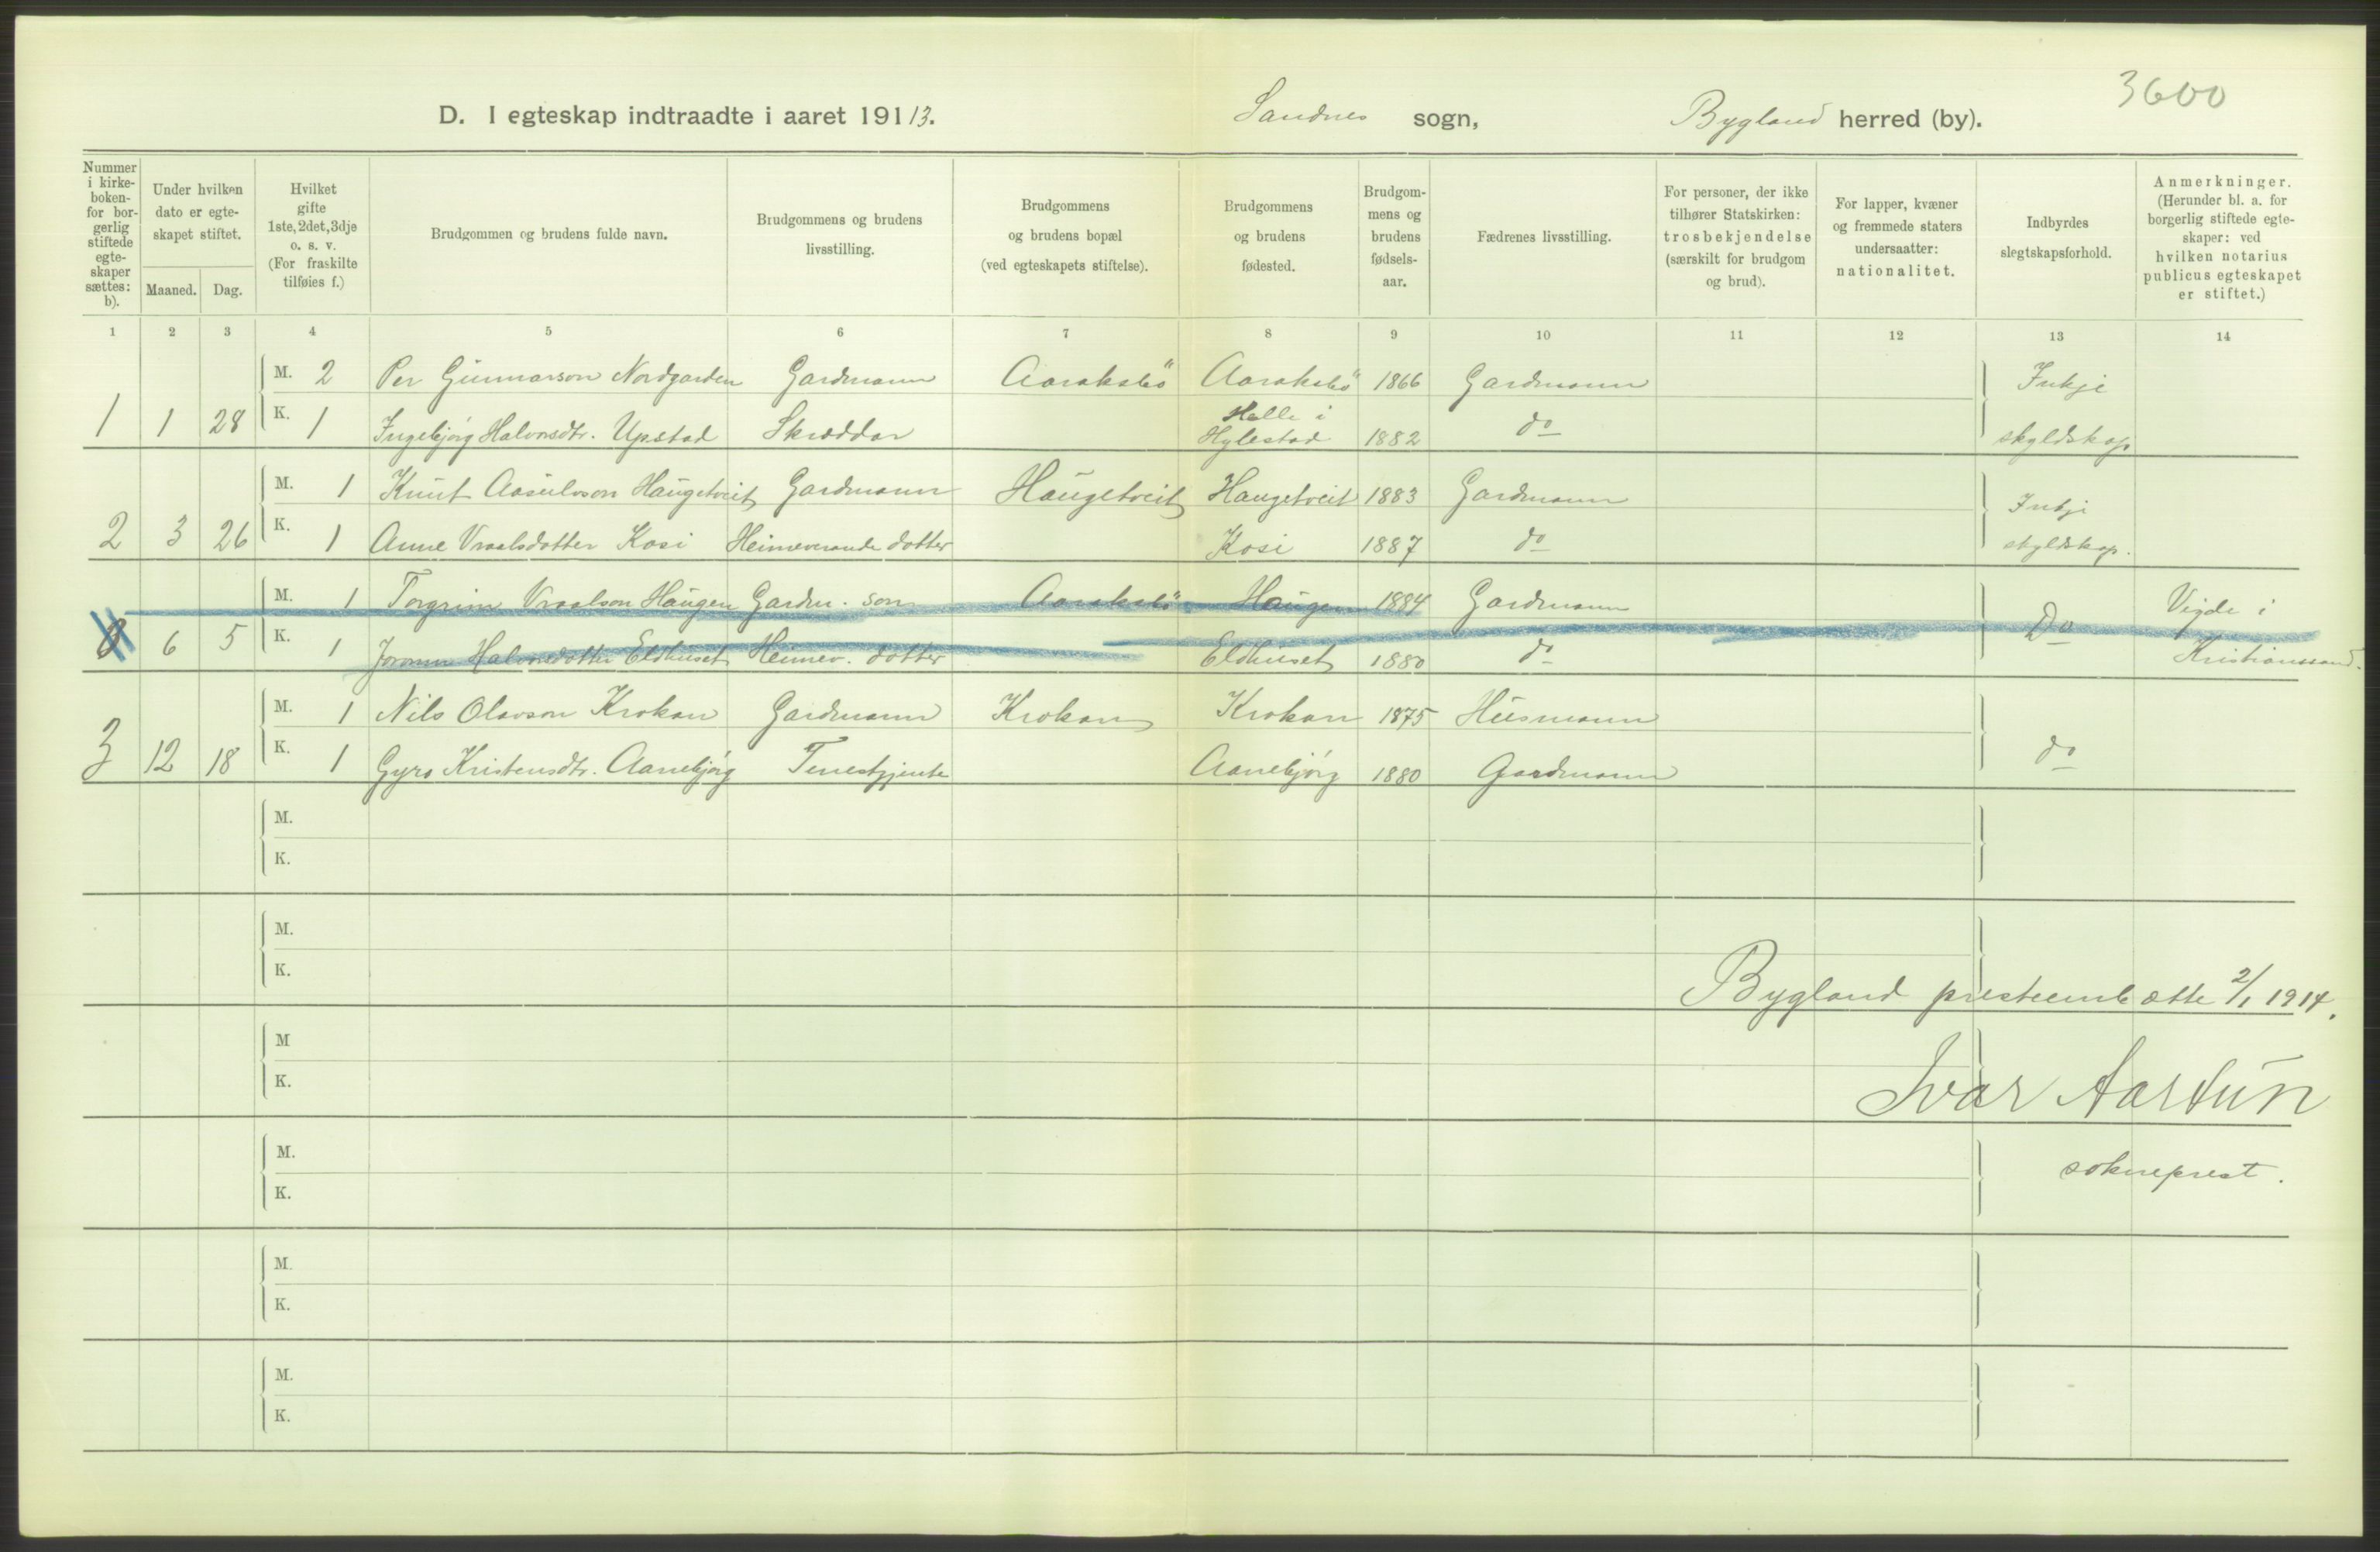 3600
D. I egteskap indtraadte i aaret 19113. Sandnes sogn, Bygland herred (by).
Nummer i kirke- boken- for bor- gerlig stiftede egte- skaper sættes: b).
Under hvilken dato er egte- skapet stiftet.
Maaned. Dag.
Hvilket gifte 1ste, 2det, 3dje o. s. v. (For fraskilte tilføies f.)
Brudgommen og brudens fulde navn.
Brudgommens og brudens livsstilling.
Brudgommens og brudens bopæl (ved egteskapets stiftelse).
Brudgommens og brudens fødested.
Brudgom- mens og brudens fødsels- aar.
Fædrenes livsstilling.
For personer, der ikke tilhører Statskirken: trosbekjendelse (særskilt for brudgom og brud).
For lapper, kvæner og fremmede staters undersaatter: nationalitet.
Indbyrdes slegtskapsforhold.
Anmerkninger. (Herunder bl. a. for borgerlig stiftede egte- skaper: ved hvilken notarius publicus egteskapet er stiftet.)
1 2 3 4 5 6 7 8 9 10 11 12 13 14
M. 2 Per Gunnarson Nordgarden Gardmann Aaraksbö Aaraksbö 1866 Gardmann Inkje
1 1 28 K. 1 Ingebjörg Halvorsdtr. Upstad Skreddar Helle i Hylestad 1882 do skyldskap
M. 1 Knut Aasulvson Haugetveit Gardmann Haugetveit Haugetveit 1883 Gardmann Inkje
2 3 26 K. 1 Anne Vraalsdotter Kosi Heimeverande dotter Kosi 1887 do skyldskap.
M. 1 Torgrim Vraalson Haugen Gardm. son Aaraksbö Haugen 1884 Gardmann Vigde i
6 5 K. 1 Joronn Halvorsdotter Eldhuset Heimev. dotter Eldhuset 1880 do Do Kristianssand.
M. 1 Nils Olavson Krokan Gardmann Krokan Krokan 1875 Husmann
3 12 18 K. 1 Gyro Kristensdtr. Aanebjörg Tenestgjente Aanebjörg 1880 Gardmann do
M.
K.
M.
K.
Bygland presteembætte 2/1 1914.
M
K.
Ivar Aartun
M.
K.
sokneprest.
M.
K.
M.
K.